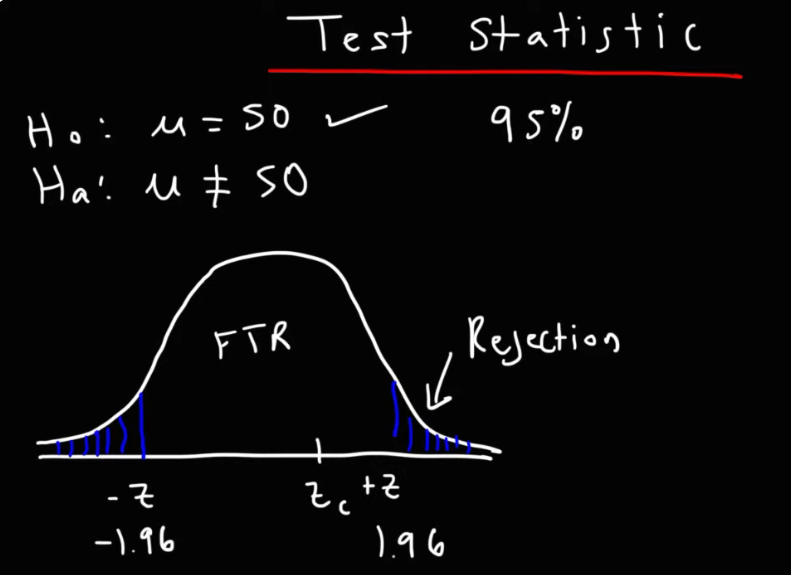 Test Statistic
Ho: μ = 50 ✓ 95%
Ha: μ ≠ 50
FTR
Rejection
-z zc +z
-1.96 1.96